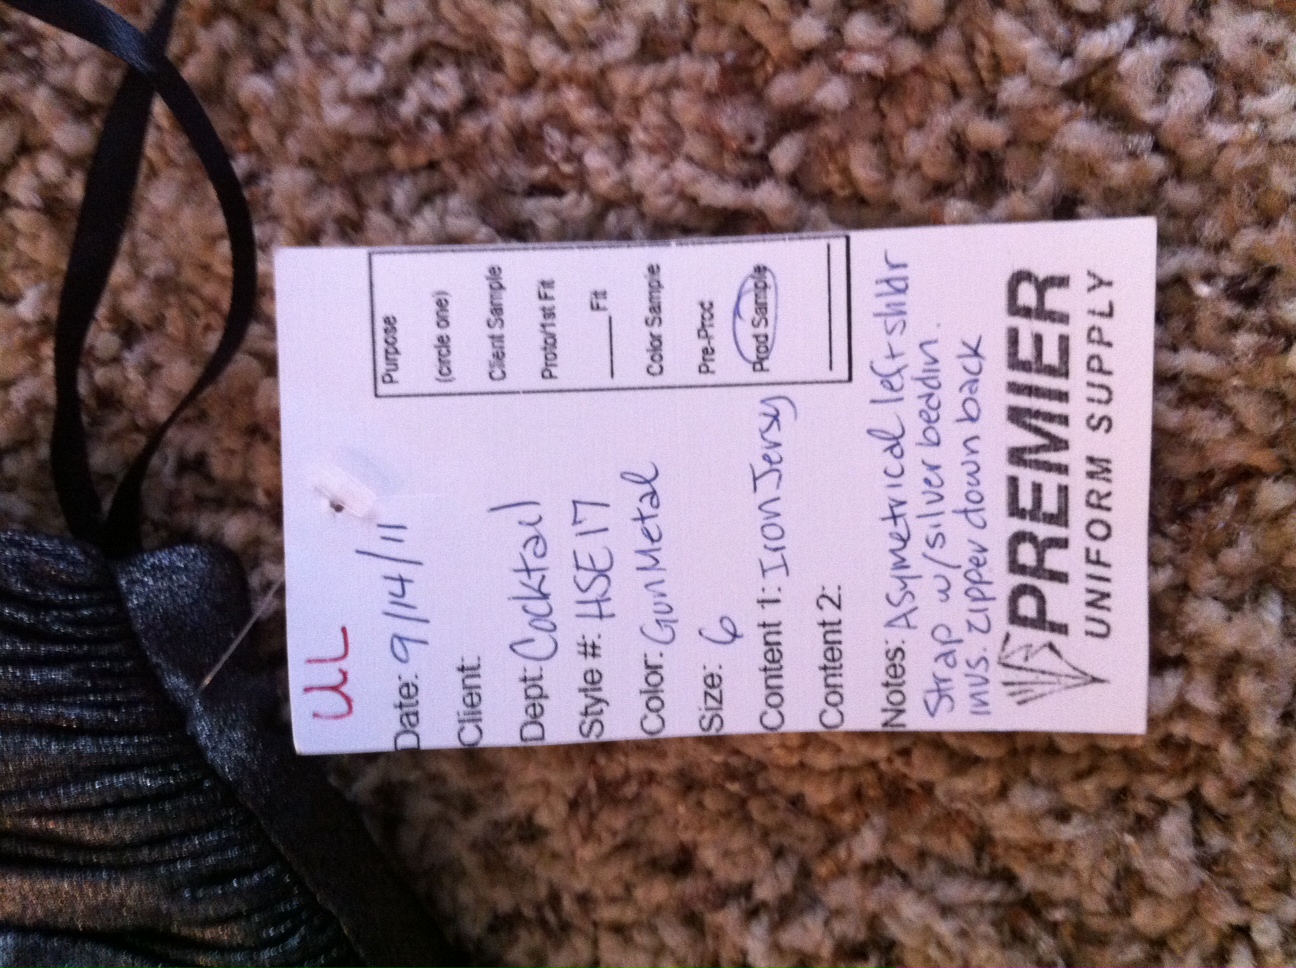 UL
Date: 9/14/11
Client:
Dept: Cocktail
Style #: HSE17
Color: GunMetal
Size: 6
Content 1: Iron Jersy
Content 2:
Notes: Asymetrical left shldr
Strap w/silver beadin.
invs. zipper down back
Purpose
(circle one)
Client Sample
Proto/1st Fit
____ Fit
Color Sample
Pre-Prod
Prod Sample
PREMIER
UNIFORM SUPPLY